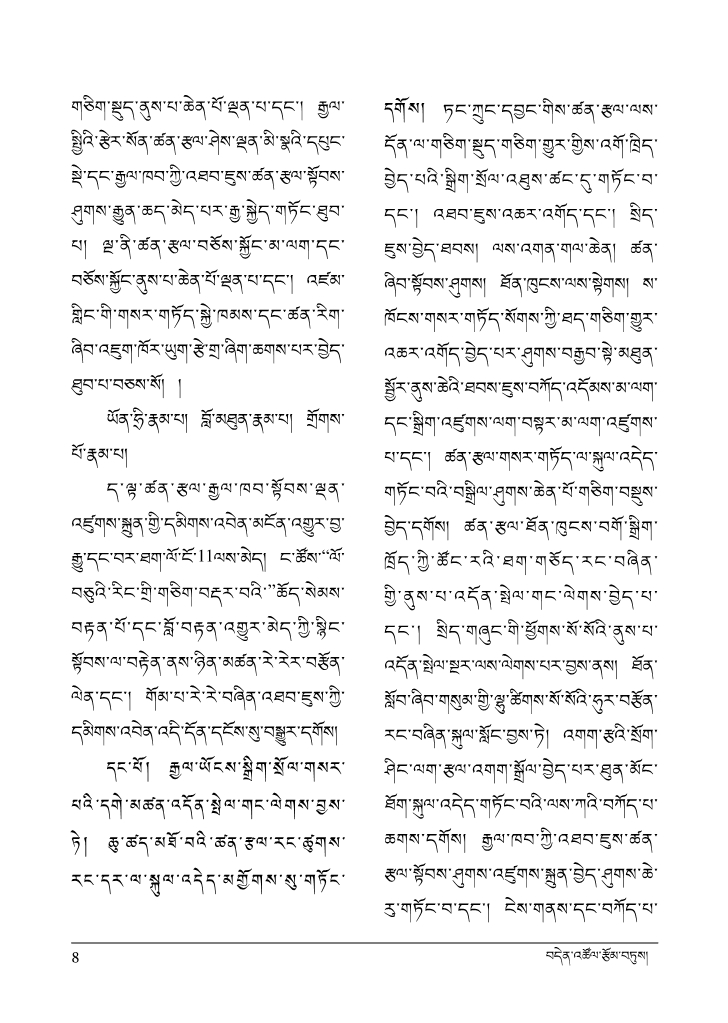 གཅིག་སྡུད་ནུས་པ་ཆེན་པོ་ལྡན་པ་དང་། རྒྱལ་
སྤྱིའི་རྩེར་སོན་ཚན་རྩལ་ཤེས་ལྡན་མི་སྣའི་དཔུང་
སྡེ་དང་རྒྱལ་ཁབ་ཀྱི་འཐབ་ཇུས་ཚན་རྩལ་སྟོབས་
ཤུགས་རྒྱུན་ཆད་མེད་པར་རྒྱ་སྐྱེད་གཏོང་ཐུབ་
པ། ལྔ་ནི་ཚན་རྩལ་བཅོས་སྐྱོང་མ་ལག་དང་
བཅོས་སྐྱོང་ནུས་པ་ཆེན་པོ་ལྡན་པ་དང་། འཛམ་
གླིང་གི་གསར་གཏོད་སྐྱེ་ཁམས་དང་ཚན་རིག་
ཞིབ་འཇུག་ཁོར་ཡུག་རྩེ་གྲ་ཞིག་ཆགས་པར་བྱེད་
ཐུབ་པ་བཅས་སོ། །
ཡོན་ཧྲི་རྣམ་པ། བློ་མཐུན་རྣམ་པ། གྲོགས་
པོ་རྣམ་པ།
ད་ལྟ་ཚན་རྩལ་རྒྱལ་ཁབ་སྟོབས་ལྡན་
འཛུགས་སྐྲུན་གྱི་དམིགས་འབེན་མངོན་འགྱུར་བྱ་
རྒྱུ་དང་བར་ཐག་ལོ་ངོ་11ལས་མེད། ང་ཚོས་“ལོ་
བཅུའི་རིང་གྲི་གཅིག་བརྡར་བའི་”ཆོད་སེམས་
བརྟན་པོ་དང་བློ་བརྟན་འགྱུར་མེད་ཀྱི་སྙིང་
སྟོབས་ལ་བརྟེན་ནས་ཉིན་མཚན་རེ་རེར་བརྩོན་
ལེན་དང་། གོམ་པ་རེ་རེ་བཞིན་འཐབ་ཇུས་ཀྱི་
དམིགས་འབེན་འདི་དོན་དངོས་སུ་བསྒྱུར་དགོས།
དང་པོ། རྒྱལ་ཡོངས་སྒྲིག་སྲོལ་གསར་
པའི་དགེ་མཚན་འདོན་སྤེལ་གང་ལེགས་བྱས་
ཏེ། ཆུ་ཚད་མཐོ་བའི་ཚན་རྩལ་རང་ཚུགས་
རང་དར་ལ་སྐུལ་འདེད་མགྱོགས་སུ་གཏོང་
དགོས། ཏང་ཀྲུང་དབྱང་གིས་ཚན་རྩལ་ལས་
དོན་ལ་གཅིག་སྡུད་གཅིག་གྱུར་གྱིས་འགོ་ཁྲིད་
བྱེད་པའི་སྒྲིག་སྲོལ་འཐུས་ཚང་དུ་གཏོང་བ་
དང་། འཐབ་ཇུས་འཆར་འགོད་དང་། སྲིད་
ཇུས་བྱེད་ཐབས། ལས་འགན་གལ་ཆེན། ཚན་
ཞིབ་སྟོབས་ཤུགས། ཐོན་ཁུངས་ལས་སྟེགས། ས་
ཁོངས་གསར་གཏོད་སོགས་ཀྱི་ཐད་གཅིག་གྱུར་
འཆར་འགོད་བྱེད་པར་ཤུགས་བརྒྱབ་སྟེ་མཐུན་
སྦྱོར་ནུས་ཆེའི་ཐབས་ཇུས་བཀོད་འདོམས་མ་ལག་
དང་སྒྲིག་འཛུགས་ལག་བསྟར་མ་ལག་འཛུགས་
པ་དང་། ཚན་རྩལ་གསར་གཏོད་ལ་སྐུལ་འདེད་
གཏོང་བའི་བསྒྲིལ་ཤུགས་ཆེན་པོ་གཅིག་བསྡུས་
བྱེད་དགོས། ཚན་རྩལ་ཐོན་ཁུངས་བགོ་སྒྲིག་
ཁྲོད་ཀྱི་ཚོང་རའི་ཐག་གཅོད་རང་བཞིན་
གྱི་ནུས་པ་འདོན་སྤེལ་གང་ལེགས་བྱེད་པ་
དང་། སྲིད་གཞུང་གི་ཕྱོགས་སོ་སོའི་ནུས་པ་
འདོན་སྤེལ་སྔར་ལས་ལེགས་པར་བྱས་ནས། ཐོན་
སློབ་ཞིབ་གསུམ་གྱི་ལྷུ་ཚིགས་སོ་སོའི་ཧུར་བརྩོན་
རང་བཞིན་སྐུལ་སློང་བྱས་ཏེ། འགག་རྩའི་སྲོག་
ཤིང་ལག་རྩལ་འགག་སྒྲོལ་བྱེད་པར་ཐུན་མོང་
ཐོག་སྐུལ་འདེད་གཏོང་བའི་ལས་ཀའི་བཀོད་པ་
ཆགས་དགོས། རྒྱལ་ཁབ་ཀྱི་འཐབ་ཇུས་ཚན་
རྩལ་སྟོབས་ཤུགས་འཛུགས་སྐྲུན་བྱེད་ཤུགས་ཆེ་
རུ་གཏོང་བ་དང་། ངེས་གནས་དང་བཀོད་པ་
8
བདེན་འཚོལ་རྩོམ་བཏུས།